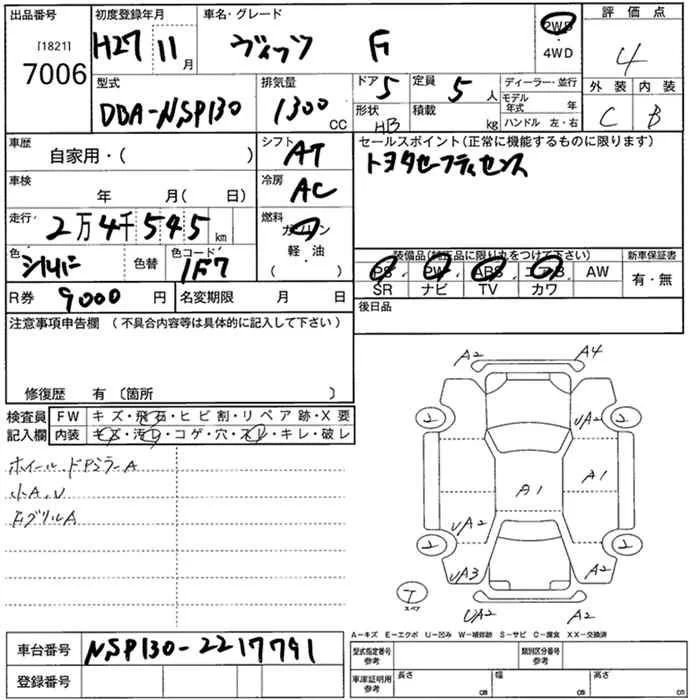 出品番号 初度登録年月 車名・グレード 評価点
[1821] 7006 H27 11月 ヴィッツ F 2WD・4WD 4
型式 排気量 ドア 5 定員 5人 ディーラー・並行 外装 内装
DBA-NSP130 1300CC 形状 HB 積載 kg モデル年式 年 C B
ハンドル 左・右
車歴 自家用・( ) シフト AT セールスポイント(正常に機能するものに限ります)
トヨタセーフティセンス
車検 年 月( 日) 冷房 AC
走行 2万4千545km 燃料 ガソリン
軽・油
( )
色 シルバー 色替 色コード 1F7 装備品(純正品に限り丸をつけて下さい) 新車保証書
PS PW ABS エアB AW 有・無
SR ナビ TV カワ
R券 9000円 名変期限 月 日 後日品
注意事項申告欄(不具合内容等は具体的に記入して下さい)
修復歴 有(箇所 )
検査員 FW キズ・飛石・ヒビ割・リペア跡・X要
記入欄 内装 キズ・汚レ・コゲ・穴・スレ・キレ・破レ
ホイール、ドアミラーA
小A、U
FグリルA
A2 A4
2 UA2 2
A1 A1
UA2
2 2
UA3 A2
T スペア
UA2 A2
A-キズ E-エクボ U-凹み W-補修跡 S-サビ C-腐食 XX-交換済
車台番号 NSP130-2217791 型式指定番号 参考 類別区分番号 参考
登録番号 車庫証明用 参考 長さ cm 幅 cm 高さ cm